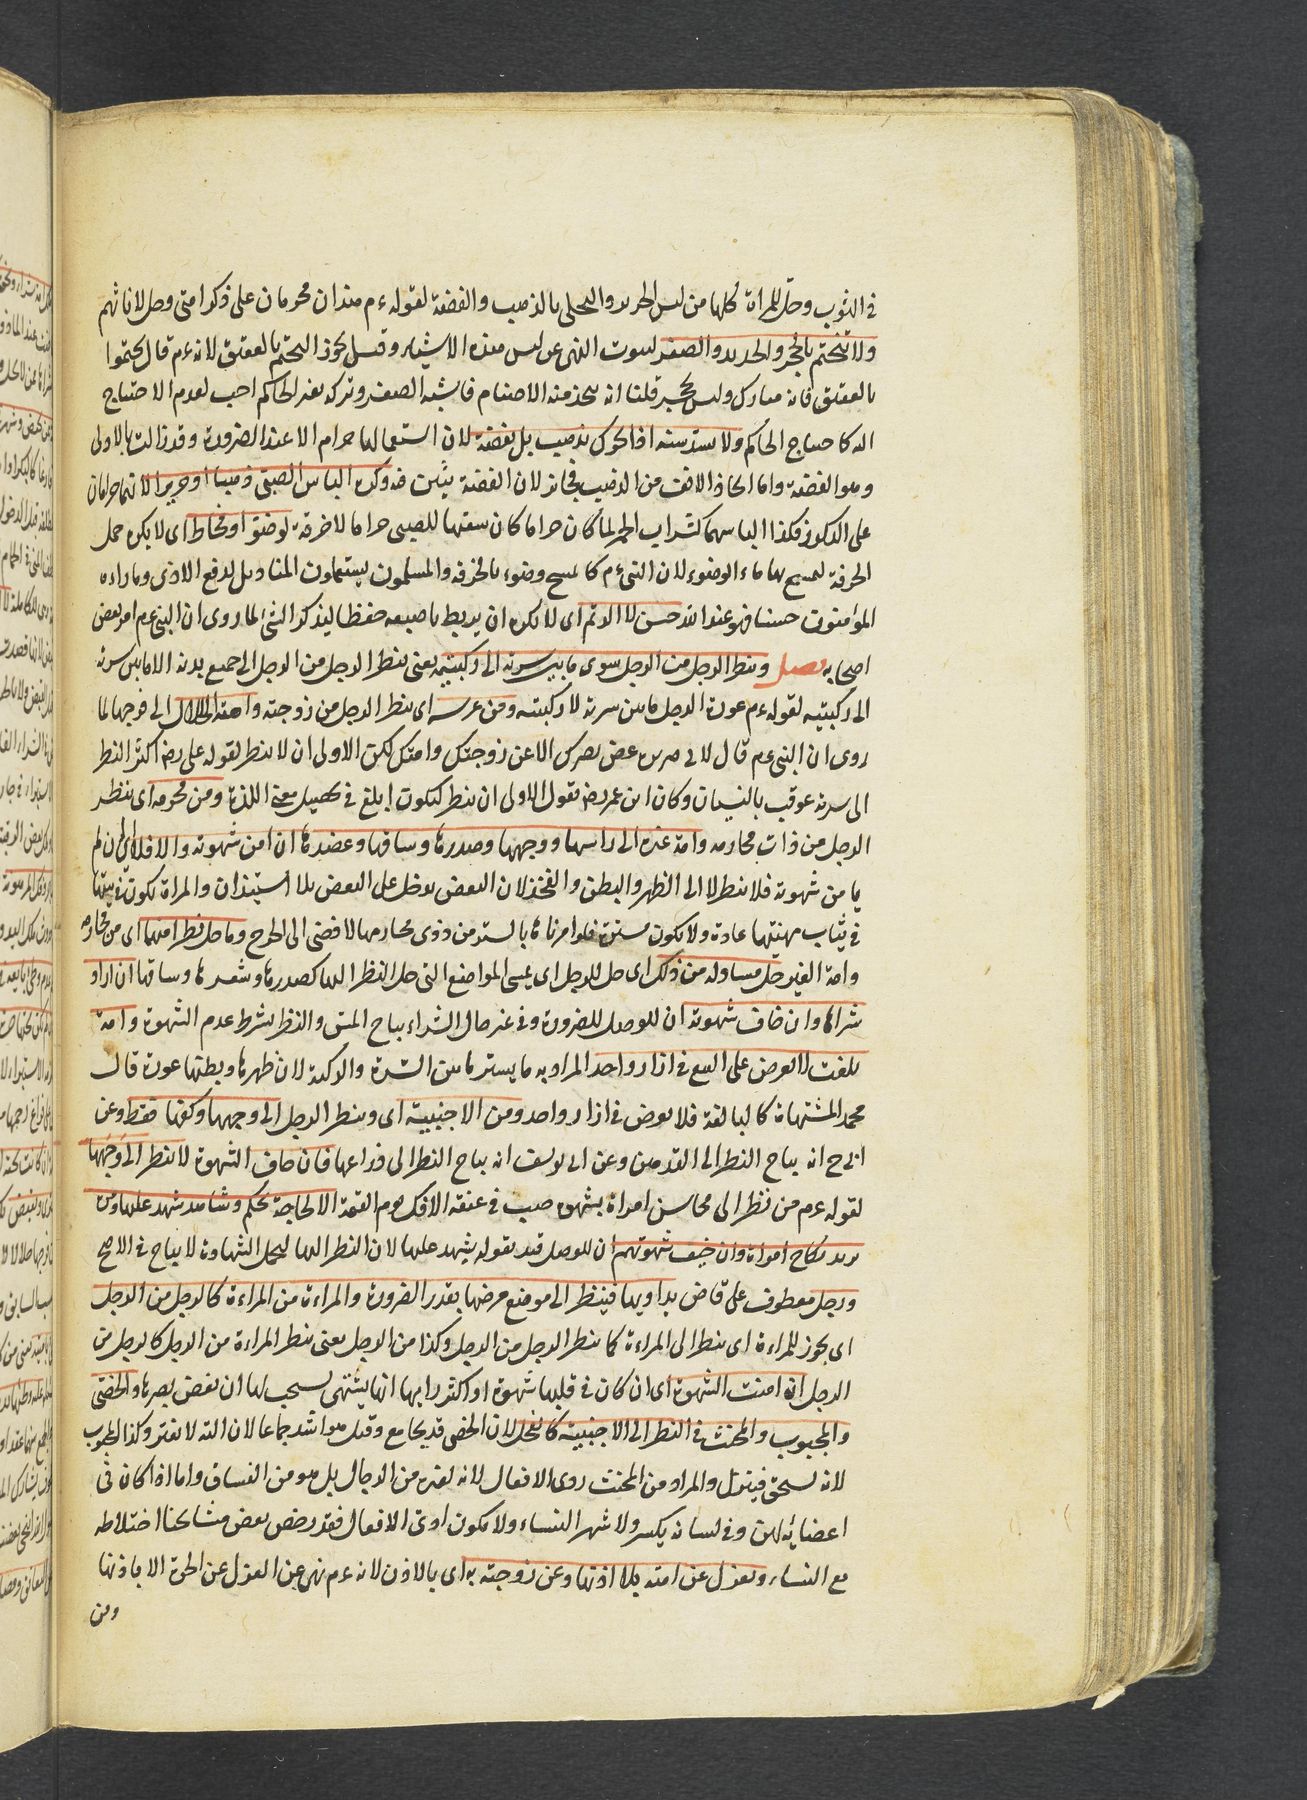 في الثوب وحل للمراة كلها من لبس الحرير والتحلى بالذهب والفضة لقوله ءم هذان محرمان على ذكر امتى وحل لاناثهم
ولا يتختم بالحجر والحديد والصفر لثبوت النهى عن لبس هذه الاشياء وقيل يجوز التختم بالعقيق لانه ءم قال تختموا
بالعقيق فانه مبارك وليس بحجر قلنا انه يتخذ منه الاصنام فاشبه الصفر وتركه لغير الحاكم احب لعدم الاحتياج
اليه كاحتياج الحاكم ولا يشد سنه اذا تحرك بذهب بل بفضة لان استعمالها حرام الا عند الضرورة وقد زالت بالاولى
وهو الفضة واما اتخاذ الانف من الذهب فجائز لان الفضة ينتن فيه وكره الباس الصبى ذهبا او حريرا لانهما حرامان
على الذكور فكذا الباسهما كشراب الخمر لما كان حراما كان سقيها للصبى حراما لا خرقة لوضوء او مخاط اى لا يكره حمل
الخرقة ليمسح بها ماء الوضوء لان النبى ءم كان يمسح وضوءه بالخرقة والمسلمون يستعملون المناديل لدفع الاذى وما راءه
المؤمنون حسنا فهو عند الله حسن لا الرتم اى لا يكره ان يربط باصبعه حفظا ليذكر الشئ لما روى ان النبى ءم امر بعض
اصحابه فصل وينظر الرجل من الرجل سوى ما بين سرته الى ركبتيه يعنى ينظر الرجل من الرجل الى جميع بدنه الا ما بين سرته
الى ركبتيه لقوله ءم عورة الرجل ما بين سرته لا ركبتيه ومن عرسه اى ينظر الرجل من زوجته وامته الحلال الى فرجها لما
روى ان النبى ءم قال لابى هريرة غض بصرك الا عن زوجتك وامتك لكن الاولى ان لا ينظر لقوله على رض اكثر النظر
الى سرته عوقب بالنسيان وكان ابن عمر رض يقول الاولى ان ينظر ليكون ابلغ في تحصيل معنى اللذة ومن محرمه اى ينظر
الرجل من ذات محارمه وامة غيره الى راسها ووجهها وصدرها وساقها وعضدها ان امن شهوته والا فلا اى ان لم
يامن شهوته فلا ينظر لا الى الظهر والبطن والفخذ لان البعض يدخل على البعض بلا استيذان والمراة تكون في بيتها
في ثياب مهنتها عادة ولا تكون مستترة فلو امرناها بالستر من ذوى محارمها لافضى الى الحرج وما حل نظرا منهما اى من محارمه
وامة الغير حل مسا وله من ذلك اى حل للرجل اى يمس المواضع التى حل النظر اليها كصدرها وشعرها وساقها ان اراد
شراها وان خاف شهوته ان للوصل للضرورة وفي غير حال الشراء يباح المس والنظر بشرط عدم الشهوة وامة
بلغت لا تعرض على البيع في ازار واحد المراد به ما يستر ما بين السرة والركبة لان ظهرها وبطنها عورة قال
محمد المشتهاة كالبالغة فلا تعرض في ازار واحد ومن الاجنبية اى وينظر الرجل الى وجهها وكفها فقط وعن
ابى ح انه يباح النظر الى القدمين وعن ابى يوسف انه يباح النظر الى ذراعها فان خاف الشهوة لا ينظر الى وجهها
لقوله ءم من نظر الى محاسن امراة بشهوة صب في عينيه الانك يوم القيمة الا لحاجة كحكم وشاهد شهد عليها ومن
يريد نكاح امراة وان خيف شهوتهم ان للوصل قيد بقوله يشهد عليها لان النظر اليها لتحمل الشهادة لا يباح في الاصح
ورجل معطوف على قاض يداويها فينظر الى موضع مرضها بقدر الضرورة والمراءة من المراءة كالرجل من الرجل
اى يجوز للمراءة اى ينظر الى المراءة كما ينظر الرجل من الرجل وكذا من الرجل يعنى ينظر المراءة من الرجل كالرجل من
الرجل ان امنت الشهوة اى ان كان في قلبها شهوة او اكثر رايها انها يشتهى يستحب لها ان تغض بصرها والخصى
والمجبوب والمخنث في النظر الى الاجنبية كالفحل لان الخصى قد يجامع وقيل هو اشد جماعا لان الته لا تفتر وكذا المجبوب
لانه يسحق فينزل والمراد من المخنث ردى الافعال لانه لغيره من الرجال بل هو من الفساق واما اذا كان في
اعضائه لين وفي لسانه تكسر ولا يشتهى النساء ولا يكون ردى الافعال فقد رخص بعض مشائخنا اختلاطه
مع النساء ويعزل عن امته بلا اذنها وعن زوجته به اى بالاذن لانه ءم نهى عن العزل عن الحرة الا باذنها
ومن